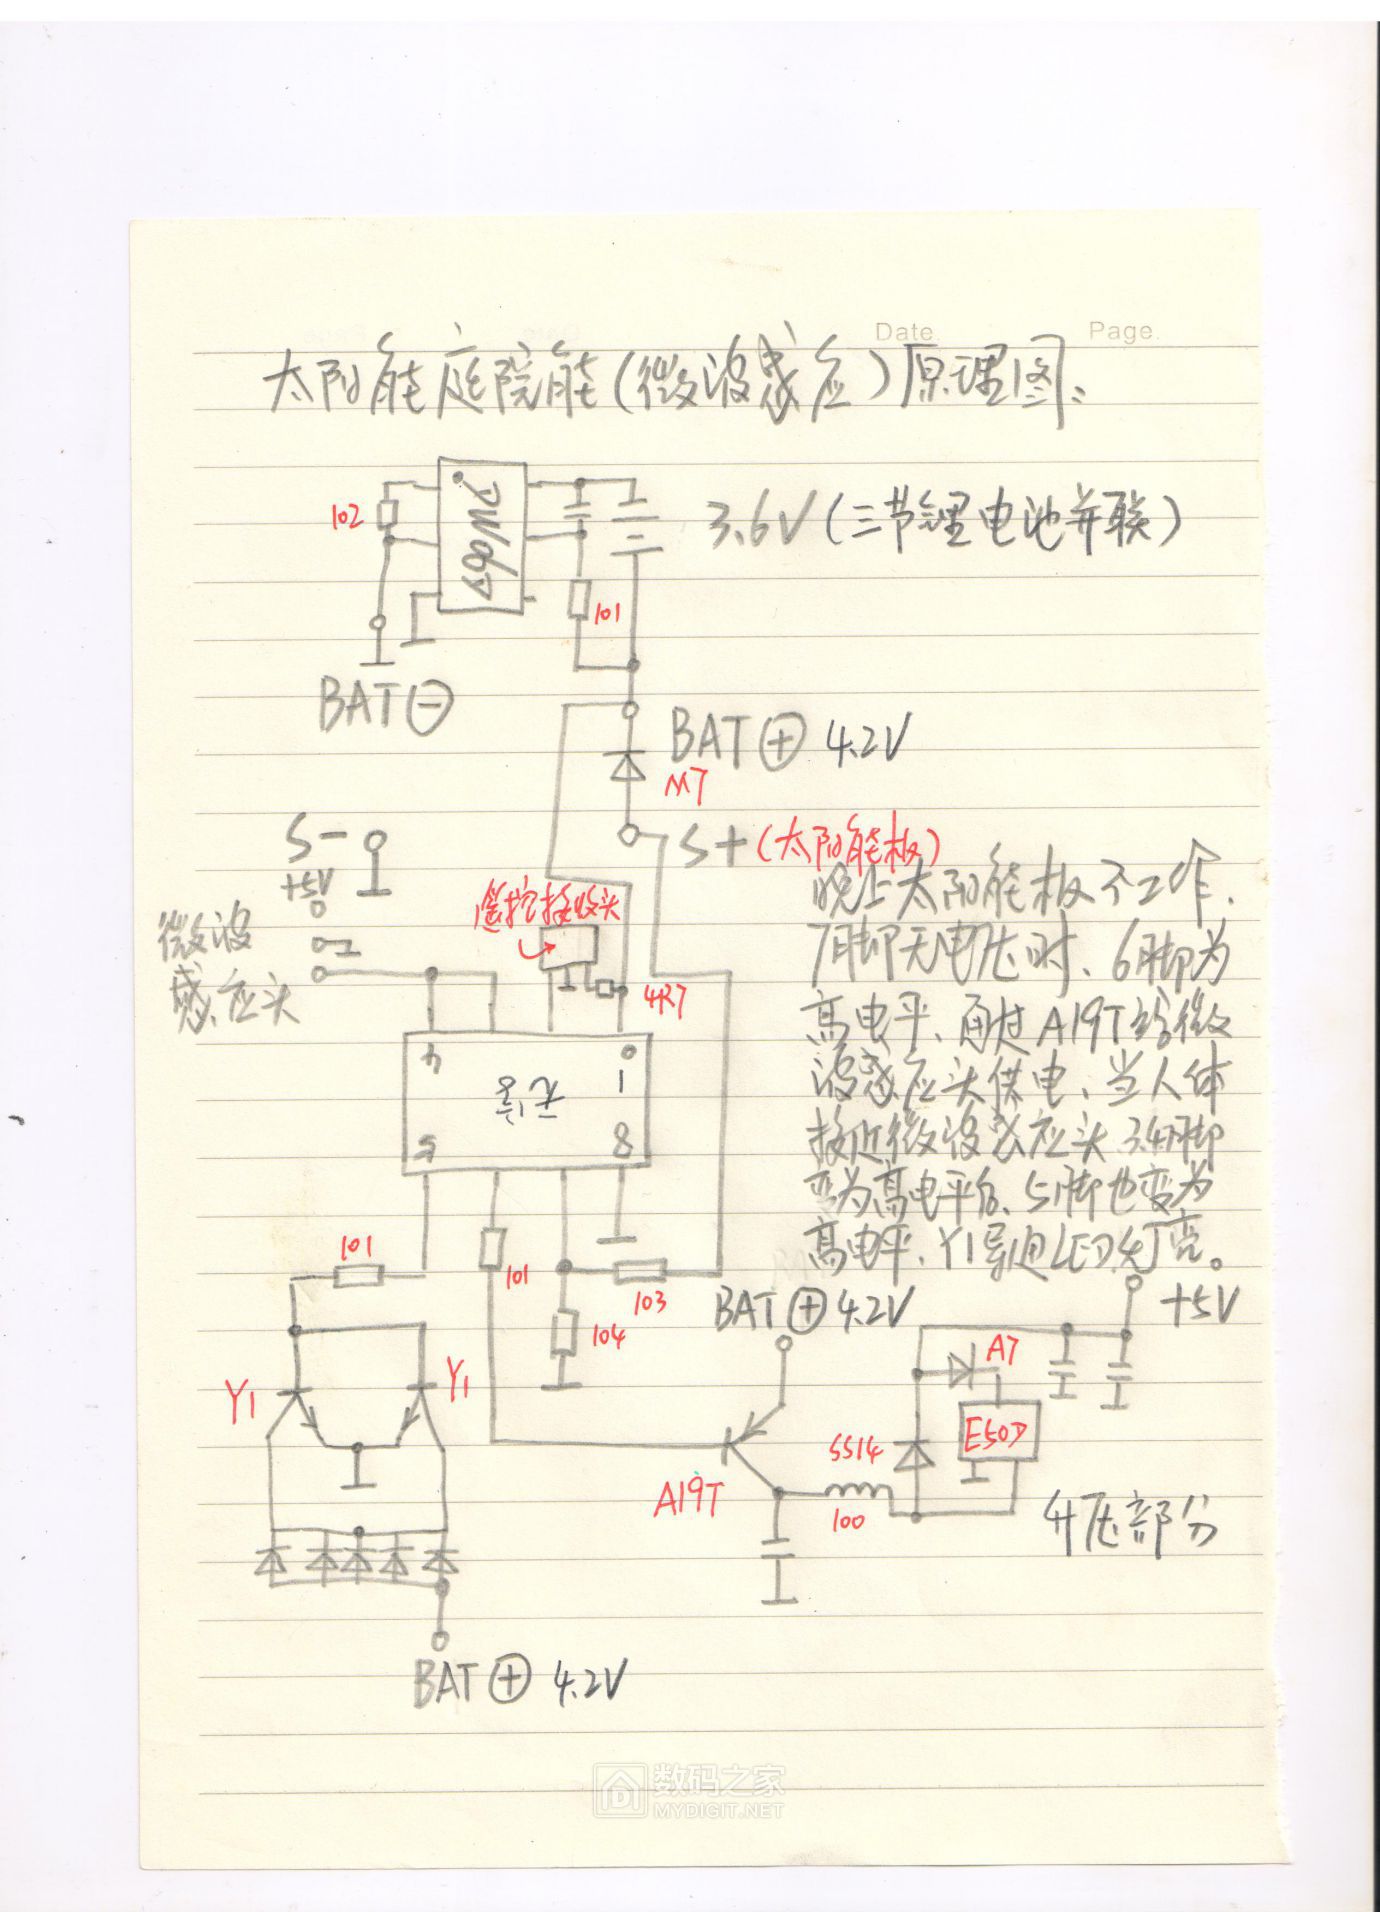 Date Page
太阳能庭院能(微波感应)原理图:
102
3.6V(三节锂电池并联)
101
BAT⊖
BAT⊕ 4.2V
M7
S-
S+(太阳能板)
+5V
遥控接收头
微波
感应头
4R7
晚上太阳能板不工作、
7脚无电压时、6脚为
高电平、通过A19T给微
波感应头供电、当人体
接近微波感应头3.4脚
变为高电平后、5脚也变为
高电平、Y1导通LED灯亮。
4
无字
1
5
8
101
101
103
104
BAT⊕4.2V
+5V
A7
Y1
Y1
E50D
SS14
A19T
100
升压部分
BAT⊕ 4.2V
数码之家
MYDIGIT.NET